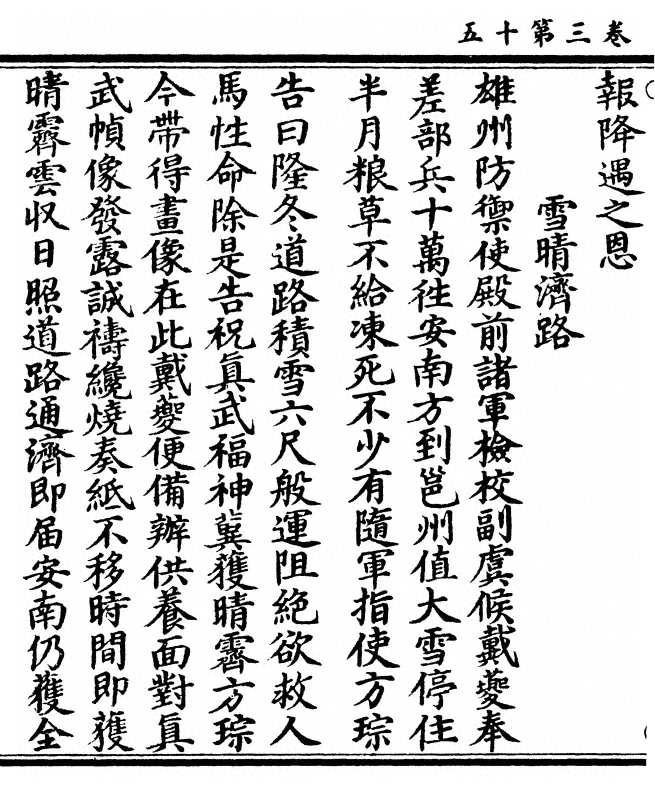 卷三第十五
報降遇之恩
雪晴濟路
雄州防禦使殿前諸軍檢校副虞候戴夔奉
差部兵十萬往安南方到邕州值大雪停住
半月粮草不給凍死不少有隨軍指使方琮
告曰隆冬道路積雪六尺般運阻絕欲救人
馬性命除是告祝真武福神冀獲晴霽方琮
今帶得畫像在此戴夔便備辦供養面對真
武幀像發露誠禱纔燒奏紙不移時間即獲
晴霽雲収日照道路通濟即届安南仍獲全